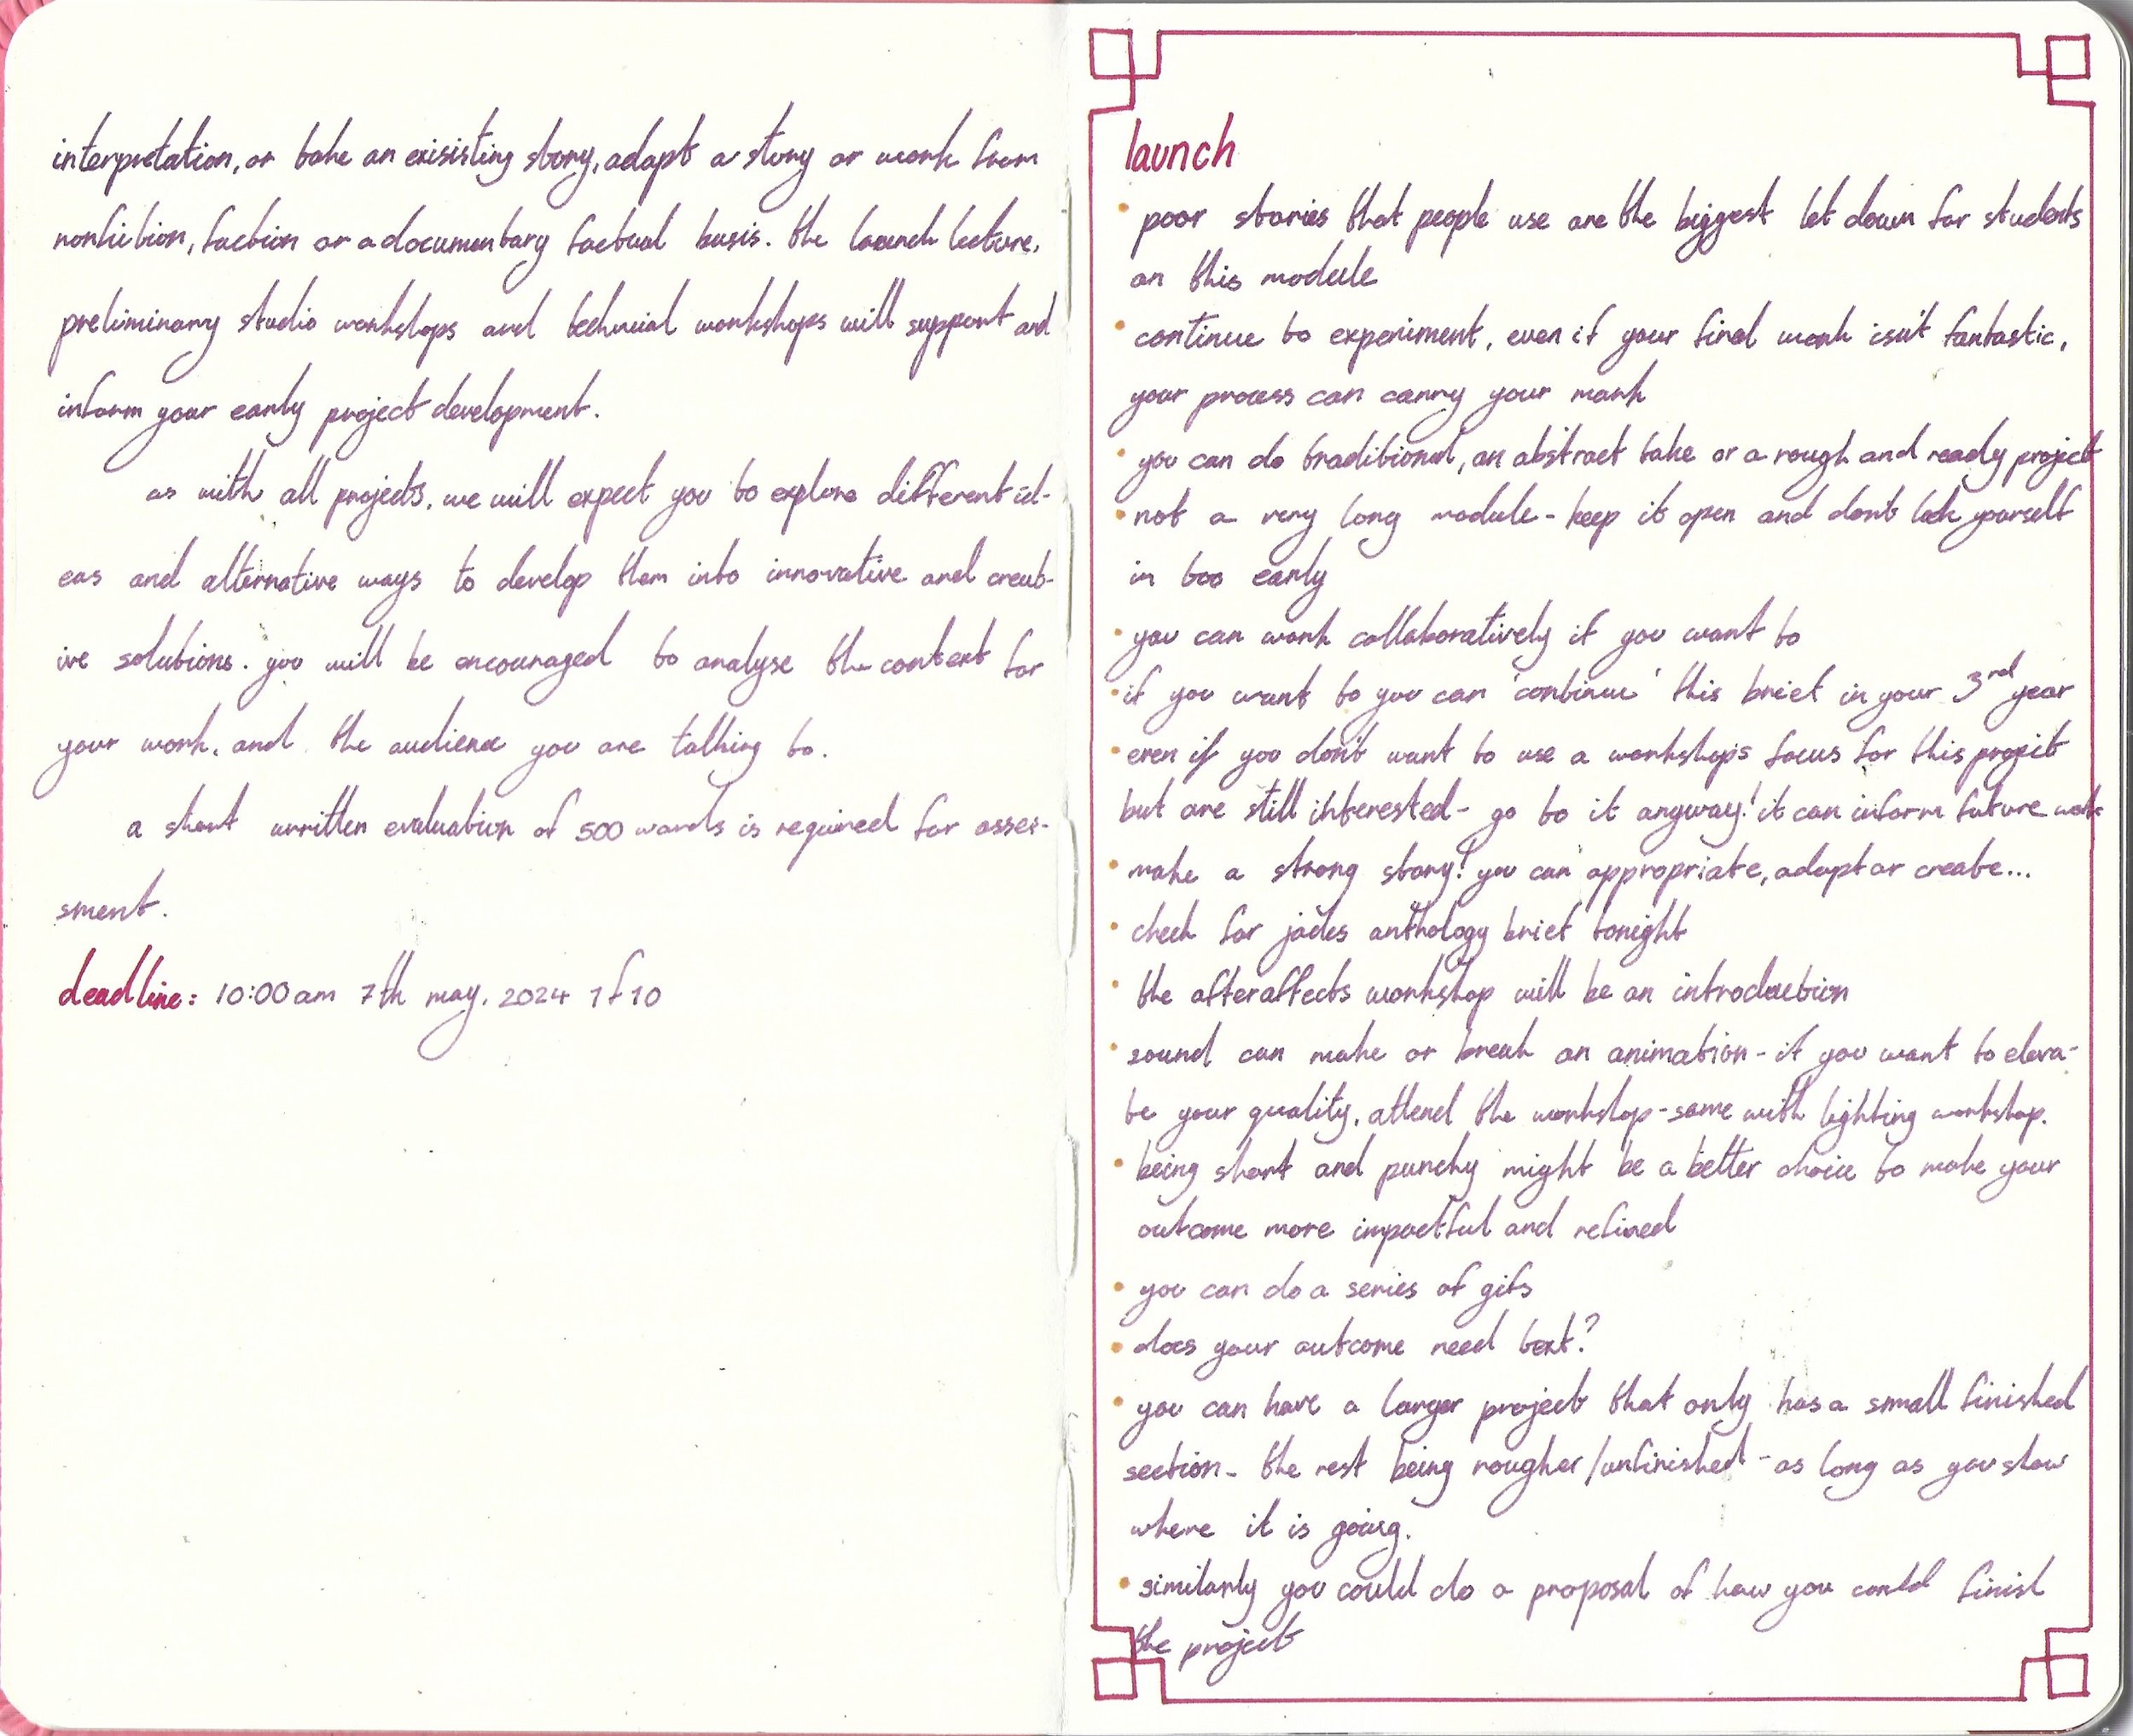 interpretation, or take an exisisting story, adapt a story or work from
nonfiction, faction or a documentary factual basis. the launch lecture,
preliminary studio workshops and technical workshops will support and
inform your early project development.
as with all projects, we will expect you to explore different id-
eas and alternative ways to develop them into innovative and creat-
ive solutions. you will be encouraged to analyse the context for
your work, and the audience you are talking to.
a short written evaluation of 500 words is required for asses-
sment.
deadline: 10:00am 7th may, 2024 1f10
launch
• poor stories that people use are the biggest let down for students
on this module
• continue to experiment, even if your final work isn't fantastic,
your process can carry your mark
• you can do traditional, an abstract take or a rough and ready project
• not a very long module - keep it open and don't lock yourself
in too early
• you can work collaboratively if you want to
• if you want to you can 'continue' this brief in your 3rd year
• even if you don't want to use a workshops focus for this project
but are still interested - go to it anyway! it can inform future work
• make a strong story! you can appropriate, adapt or create...
• check for jades anthology brief tonight
• the afteraffects workshop will be an introduction
• sound can make or break an animation - if you want to eleva-
te your quality, attend the workshop - same with lighting workshop.
• being short and punchy might be a better choice to make your
outcome more impactful and refined
• you can do a series of gifs
• does your outcome need text?
• you can have a larger project that only has a small finished
section - the rest being rougher/unfinished - as long as you show
where it is going.
• similarly you could do a proposal of how you could finish
the project